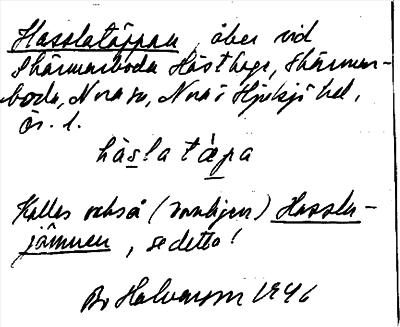 Hasslatäppan, åker vid
Skärmarboda Hästhage, Skärmar-
boda, Nora so, Nora o Hjulsjö hd,
Ör. l.
hàs̲latæ̲̀pa
Kallas också (vanligen) Hassle-
jämnen, se detta!
Bo Halvarson 1946